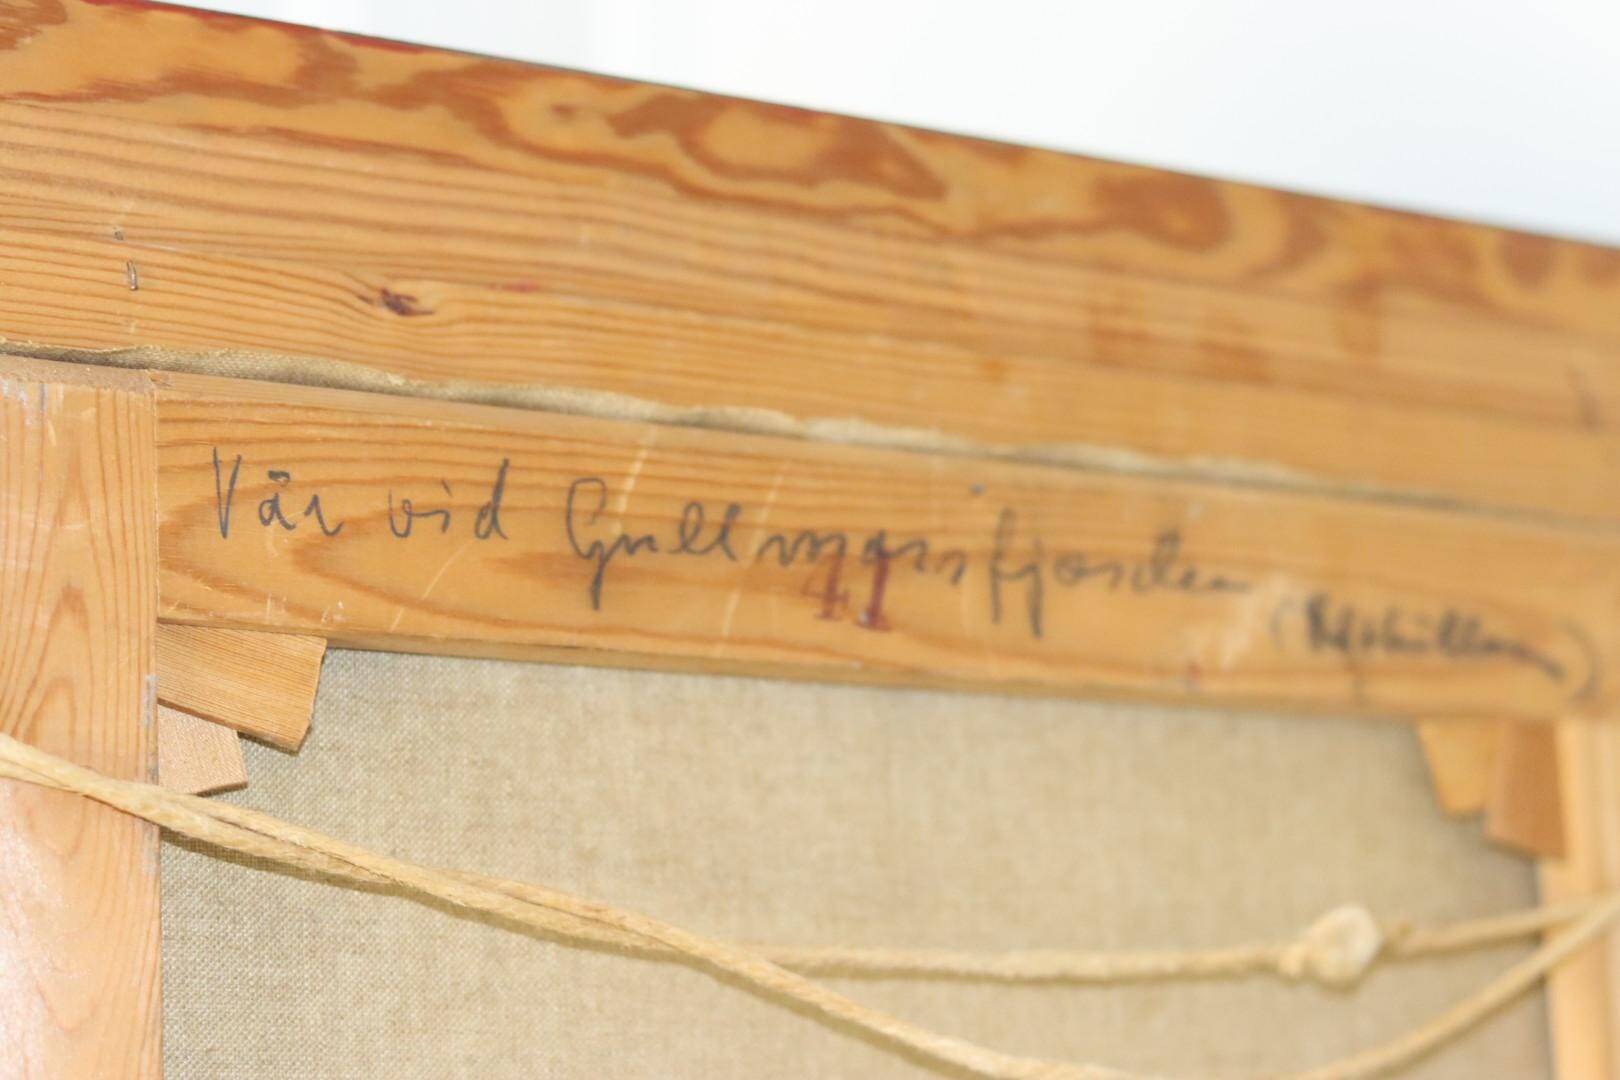 Vår vid Gullmarsfjorden
41